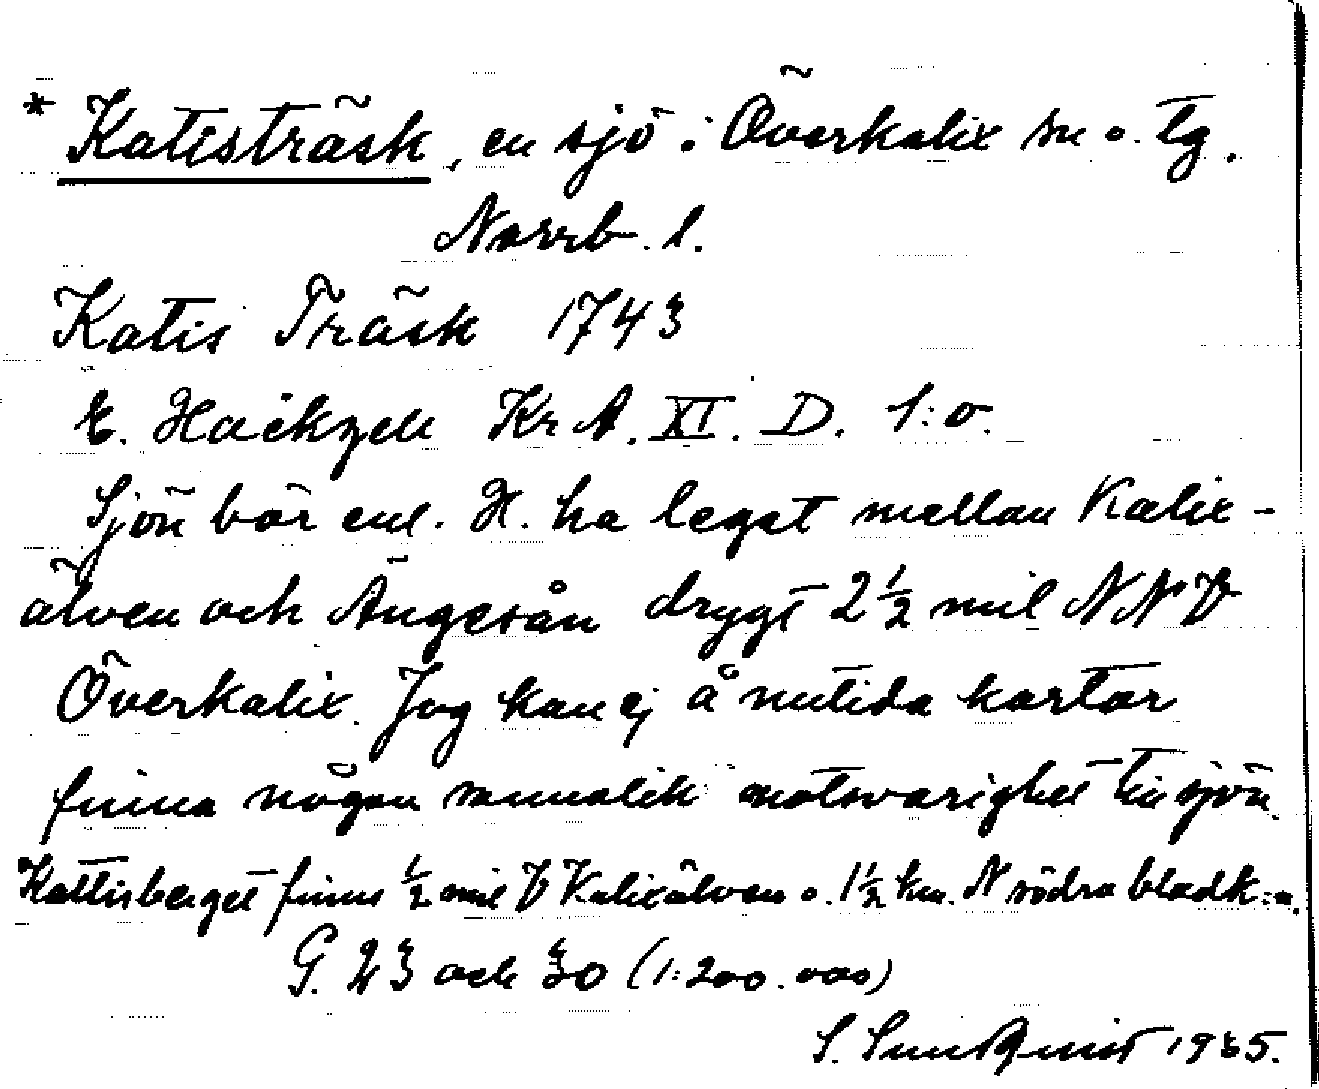 * Katisträsk, en sjö i Överkalix sn o. tg.
Norrb. l.
Katis Träsk 1743
E. Hackzell KrA. XI. D. 1:o.
Sjön bör enl. H. ha legat mellan Kalix-
älven och Ängesån drygt 2 1/2 mil NNV
Överkalix. Jag kan ej å nutida kartor
finna någon sannolik motsvarighet till sjön.
Kattisberget finns 1/2 mil V Kalixälven o. 1 1/2 km. N södra bladk:n.
G. 23 och 30 (1:200.000)
S. Sundquist 1935.